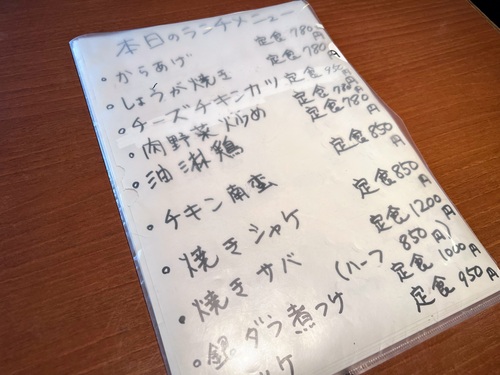 本日のランチメニュー
・からあげ 定食 780円
・しょうが焼き 定食 780円
・チーズチキンカツ 定食 950円
・肉野菜炒め 定食 780円
・油淋鶏 定食 780円
・チキン南蛮 定食 850円
・焼きシャケ 定食 850円
・焼きサバ 定食 1200円
(ハーフ 850円)
・銀ダラ煮つけ 定食 1000円
定食 950円